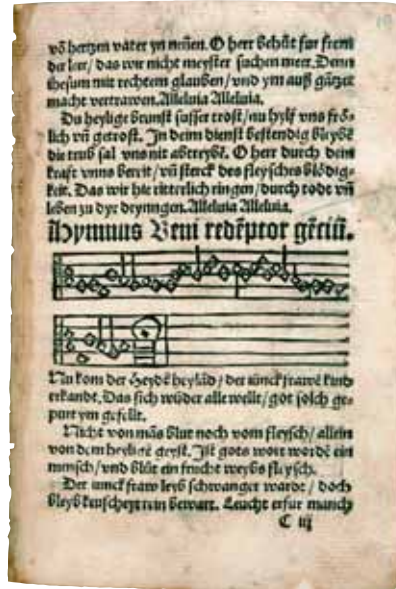 võ hertzen vater yn neñen. O herr behůt für frem
der leer / das wir nicht meyster suchen meer. Denn
Jhesum mit rechtem glauben / vnd ym auß gãtzer
macht vertrawen. Alleluia Alleluia.
Du heylige brunst süsser trost / nu hylf vns frö-
lich vñ getrost. Jn deim dienst bestendig bleybẽ
die trub sal vns nit abtreybẽ. O herr durch dein
kraft vnns bereit / vñ sterck des fleysches blödig-
keit. Das wir hie ritterlich ringen / durch todt vñ
leben zu dyr dryngen. Alleluia Alleluia.
Hymnus Veni redẽptor gẽtiũ.
Nũ kom der Heydẽ heylãd / der iunckfrawẽ kind
erkandt. Das sich wũder alle welt / got solch ge-
purt ym gestelt.
Nicht von mãs blut noch vom fleysch / allein
von dem heyligẽ geyst. Jst gots wort wordẽ ein
mensch / vnd blüt ein frucht weybs fleysch.
Der iunckfraw leyb schwanger wardt / doch
bleyb keuscheyt rein bewart. Leucht erfur manch
C iij